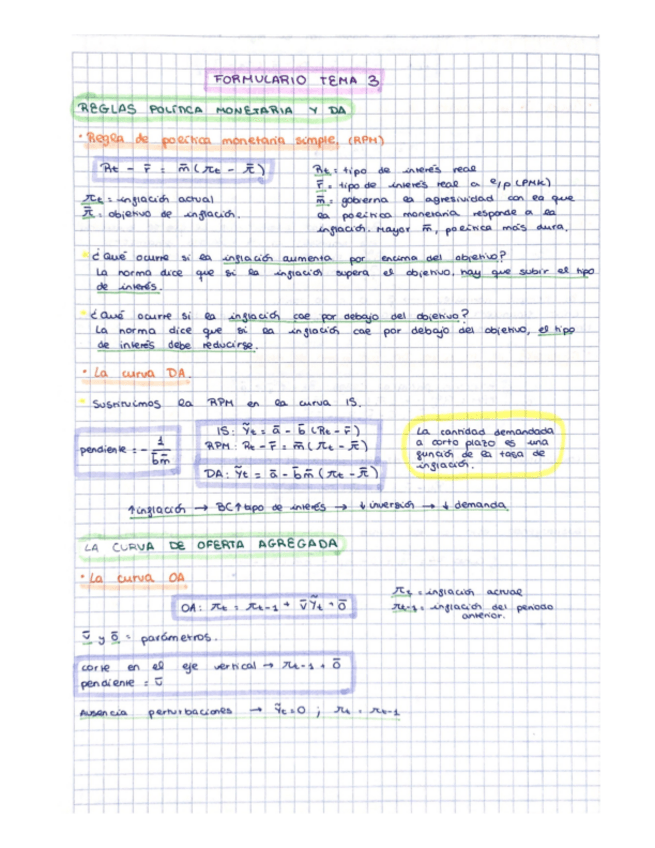 FORMULARIO TEMA 3
REGLAS POLÍTICA MONETARIA Y DA
• Regla de política monetaria simple, (RPM)
Rt - r̄ = m̄ (πt - π̄)
Rt = tipo de interés real
r̄ = tipo de interés real a e/p (PMK)
m̄ = gobierna la agresividad con la que
la política monetaria responde a la
inflación. Mayor m̄, política más dura.
πt = inflación actual
π̄ = objetivo de inflación.
¿Qué ocurre si la inflación aumenta por encima del objetivo?
La norma dice que si la inflación supera el objetivo, hay que subir el tipo
de interés.
¿Qué ocurre si la inflación cae por debajo del objetivo?
La norma dice que si la inflación cae por debajo del objetivo, el tipo
de interés debe reducirse.
• La curva DA.
Sustituimos la RPM en la curva IS.
pendiente = - 1/b̄m̄
IS: Ỹt = ā - b̄ (Rt - r̄)
RPM: Rt - r̄ = m̄ (πt - π̄)
DA: Ỹt = ā - b̄m̄ (πt - π̄)
La cantidad demandada
a corto plazo es una
función de la tasa de
inflación.
↑inflación → BC↑tipo de interés → ↓inversión → ↓demanda
LA CURVA DE OFERTA AGREGADA
• La curva OA
OA: πt = πt-1 + v̄Ỹt + ō
πt = inflación actual
πt-1 = inflación del periodo
anterior.
v̄ y ō = parámetros.
corte en el eje vertical → πt-1 + ō
pendiente = v̄
Ausencia perturbaciones → Ỹt=0 ; πt = πt-1